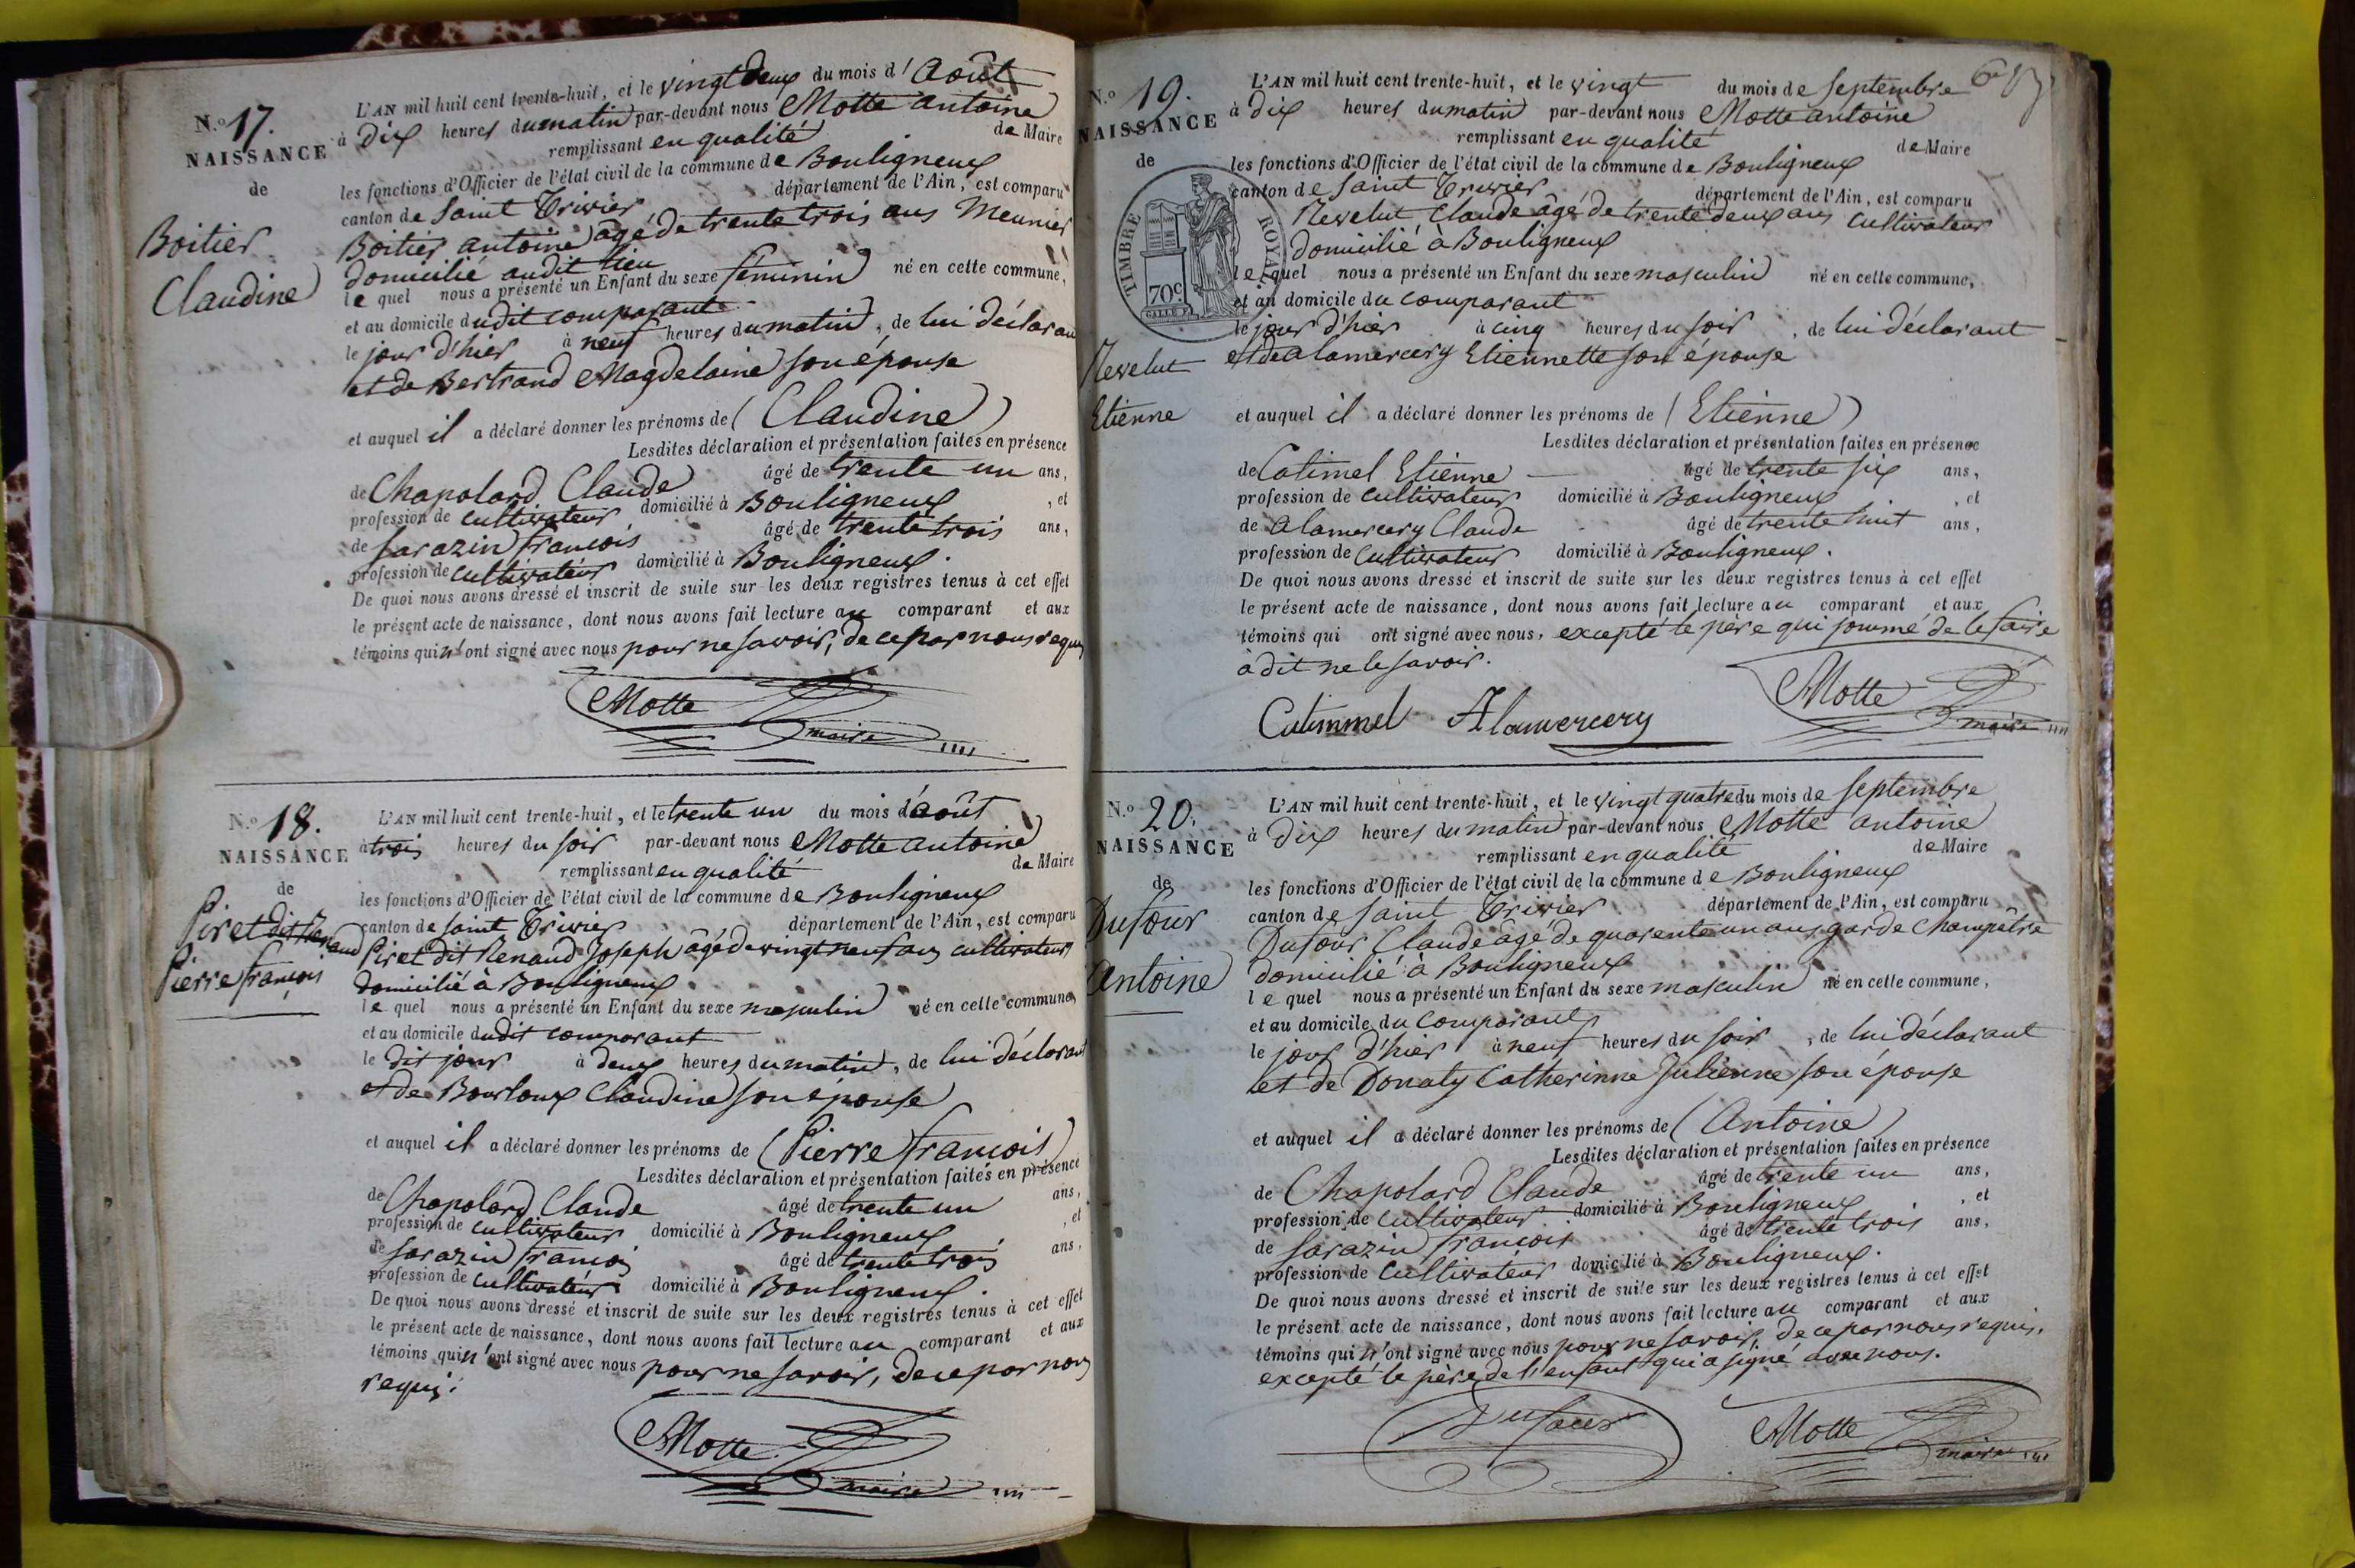 N.o 17.
NAISSANCE
de
Boitier
Claudine
L'AN mil huit cent trente-huit, et le vingt deux du mois d'Août
à dix heures du matin par-devant nous Motte antoine
remplissant en qualité de Maire
les fonctions d'Officier de l'état civil de la commune de Bouligneux
canton de Saint Trivier département de l'Ain, est comparu
Boitier antoine âgé de trente trois ans Meunier
domicilié audit lieu
le quel nous a présenté un Enfant du sexe féminin né en cette commune,
et au domicile dudit comparant
le jour d'hier à neuf heures du matin, de lui déclarant
et de Bertrand Magdelaine son épouse
et auquel il a déclaré donner les prénoms de (Claudine)
Lesdites déclaration et présentation faites en présence
de Chapolard Claude âgé de trente un ans,
profession de cultivateur domicilié à Bouligneux, et
de Sarazin françois âgé de trente trois ans,
profession de cultivateur domicilié à Bouligneux.
De quoi nous avons dressé et inscrit de suite sur les deux registres tenus à cet effet
le présent acte de naissance, dont nous avons fait lecture au comparant et aux
témoins qui n'ont signé avec nous pour ne savoir, de ce par nous requis
Motte
maire
N.o 18.
NAISSANCE
de
Piret dit Renaud
Pierre françois
L'AN mil huit cent trente-huit, et le trente un du mois d'août
à trois heures du soir par-devant nous Motte antoine
remplissant en qualité de Maire
les fonctions d'Officier de l'état civil de la commune de Bouligneux
canton de Saint Trivier département de l'Ain, est comparu
Piret dit Renaud Joseph âgé de vingt neuf ans cultivateur
domicilié à Bouligneux
le quel nous a présenté un Enfant du sexe masculin né en cette commune,
et au domicile dudit comparant
le dit jour à deux heures du matin, de lui déclarant
et de Bourloux Claudine son épouse
et auquel il a déclaré donner les prénoms de (Pierre françois)
Lesdites déclaration et présentation faites en présence
de Chapolard Claude âgé de trente un ans,
profession de cultivateur domicilié à Bouligneux, et
de Sarazin françois âgé de trente trois ans,
profession de cultivateur domicilié à Bouligneux.
De quoi nous avons dressé et inscrit de suite sur les deux registres tenus à cet effet
le présent acte de naissance, dont nous avons fait lecture au comparant et aux
témoins qui n'ont signé avec nous pour ne savoir, de ce par nous
requis.
Motte
maire
N.o 19.
NAISSANCE
de
TIMBRE ROYAL
70c.
Revelut
Etienne
L'AN mil huit cent trente-huit, et le vingt du mois de Septembre
à dix heures du matin par-devant nous Motte antoine
remplissant en qualité de Maire
les fonctions d'Officier de l'état civil de la commune de Bouligneux
canton de Saint Trivier département de l'Ain, est comparu
Revelut Claude âgé de trente deux ans cultivateur
domicilié à Bouligneux
le quel nous a présenté un Enfant du sexe masculin né en cette commune,
et au domicile du comparant
le jour d'hier à cinq heures du soir, de lui déclarant
et de alamercery Etiennette son épouse
et auquel il a déclaré donner les prénoms de (Etienne)
Lesdites déclaration et présentation faites en présence
de Catimel Etienne âgé de trente six ans,
profession de cultivateur domicilié à Bouligneux, et
de alamercery Claude âgé de trente huit ans,
profession de cultivateur domicilié à Bouligneux.
De quoi nous avons dressé et inscrit de suite sur les deux registres tenus à cet effet
le présent acte de naissance, dont nous avons fait lecture au comparant et aux
témoins qui ont signé avec nous, excepté le père qui sommé de le faire
à dit ne le savoir.
Catimmel Alamercery Motte
maire
N.o 20.
NAISSANCE
de
Dufour
Antoine
L'AN mil huit cent trente-huit, et le vingt quatre du mois de Septembre
à dix heures du matin par-devant nous Motte antoine
remplissant en qualité de Maire
les fonctions d'Officier de l'état civil de la commune de Bouligneux
canton de Saint Trivier département de l'Ain, est comparu
Dufour Claude âgé de quarente un ans garde Champêtre
domicilié à Bouligneux
le quel nous a présenté un Enfant du sexe masculin né en cette commune,
et au domicile du comparant
le jour d'hier à neuf heures du soir, de lui déclarant
et de Donaty Catherinne Julienne son épouse
et auquel il a déclaré donner les prénoms de (Antoine)
Lesdites déclaration et présentation faites en présence
de Chapolard Claude âgé de trente un ans,
profession de cultivateur domicilié à Bouligneux, et
de Sarazin françois âgé de trente trois ans,
profession de cultivateur domicilié à Bouligneux.
De quoi nous avons dressé et inscrit de suite sur les deux registres tenus à cet effet
le présent acte de naissance, dont nous avons fait lecture au comparant et aux
témoins qui n'ont signé avec nous pour ne savoir, de ce par nous requis,
excepté le père de l'enfant qui a signé avec nous.
Dufour Motte
maire